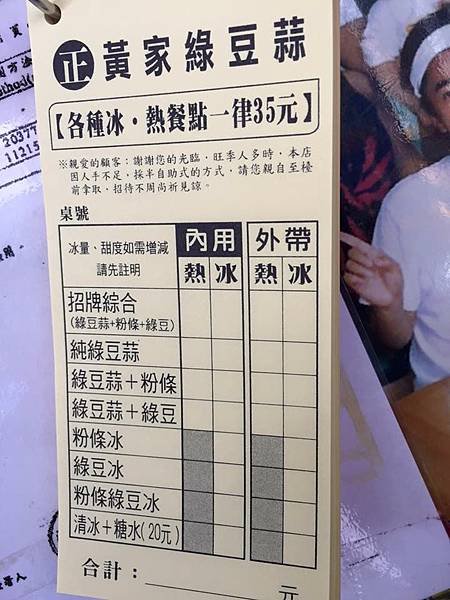 正 黃家綠豆蒜
【各種冰‧熱餐點一律35元】
※親愛的顧客：謝謝您的光臨，旺季人多時，本店
因人手不足，採半自助式的方式，請您親自至檯
前拿取，招待不周尚祈見諒。
桌號
冰量、甜度如需增減
請先註明
內用 外帶
熱 冰 熱 冰
招牌綜合
(綠豆蒜+粉條+綠豆)
純綠豆蒜
綠豆蒜＋粉條
綠豆蒜＋綠豆
粉條冰
綠豆冰
粉條綠豆冰
清冰＋糖水(20元)
合計：______元
20377
11215